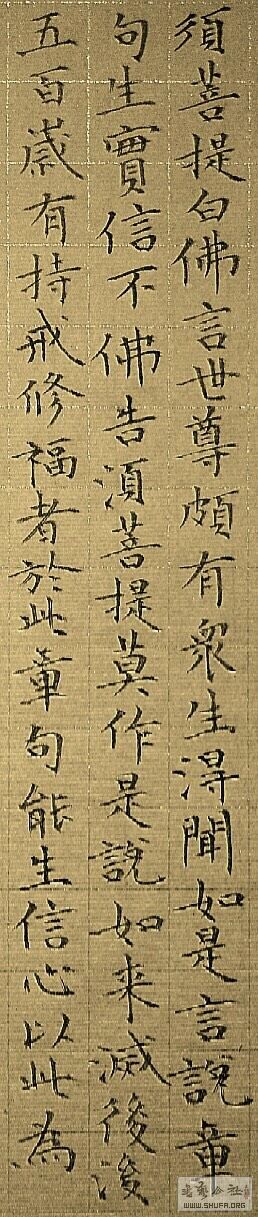 須菩提白佛言世尊頗有衆生得聞如是言說章
句生實信不佛告須菩提莫作是說如来滅後後
五百歲有持戒修福者於此章句能生信心以此為
WWW.SHUFA.ORG